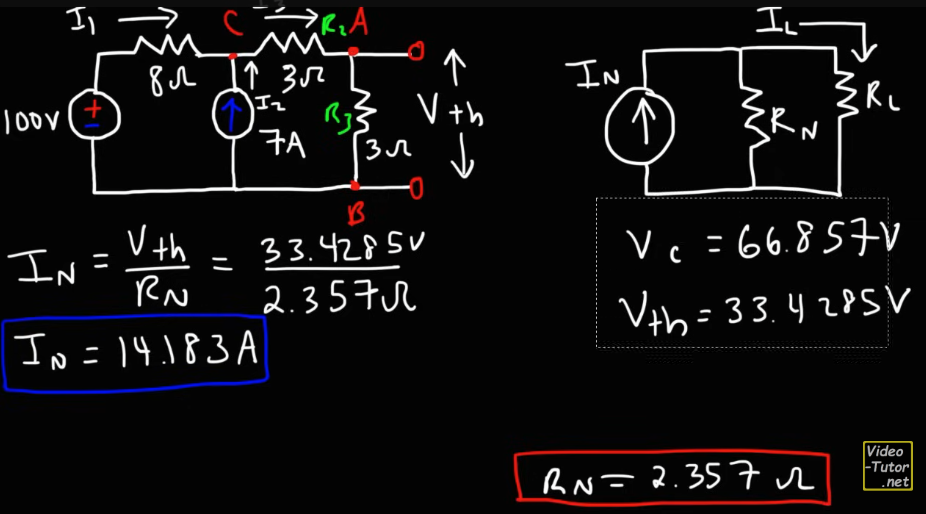 I₁
I₃
C
R₂
A
8Ω
3Ω
I₂
100V
+
-
7A
R₃
3Ω
V th
B
I_L
I_N
R_N
R_L
I_N = V_th / R_N = 33.4285V / 2.357Ω
I_N = 14.183A
V_c = 66.857V
V_th = 33.4285V
R_N = 2.357 Ω
Video
-Tutor
.net